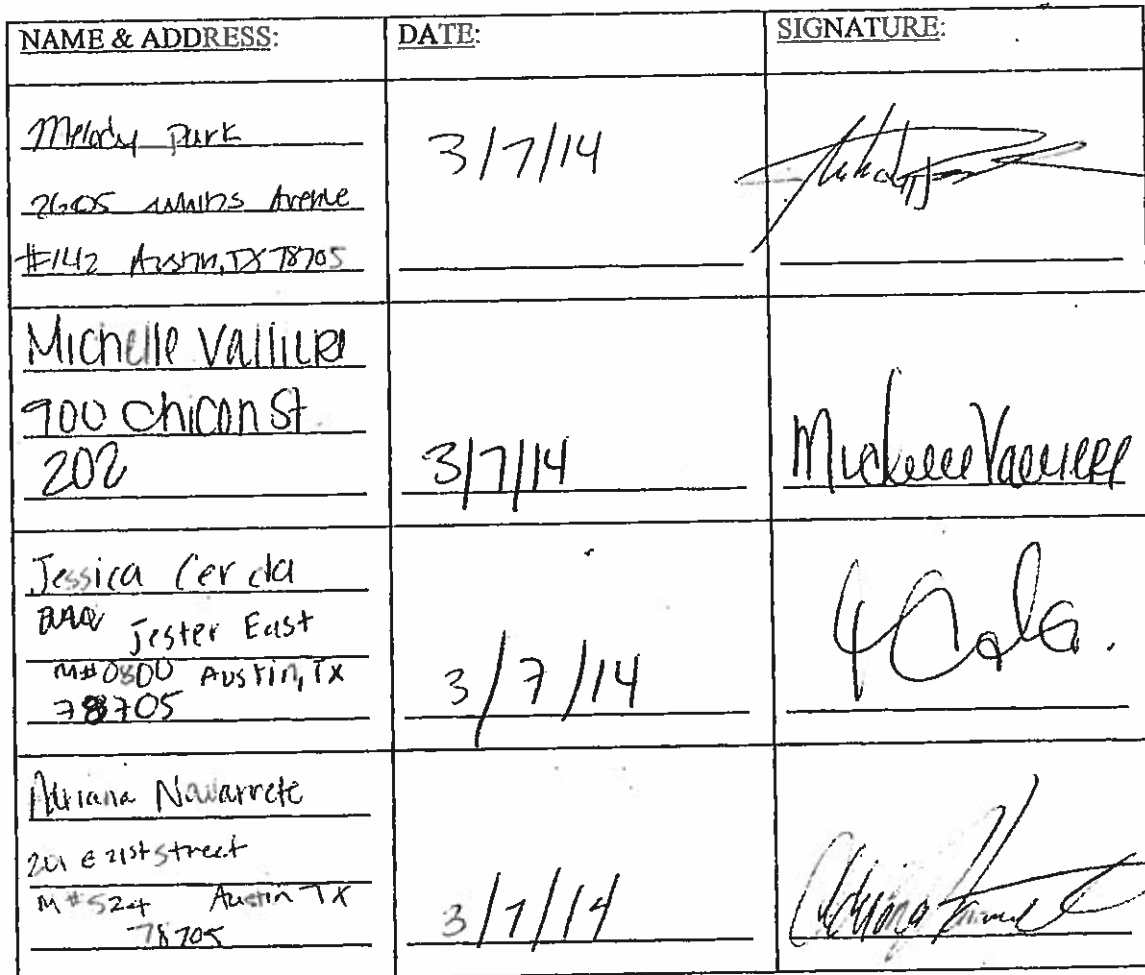 NAME & ADDRESS: DATE: SIGNATURE:
Melody Park
3/7/14
2605 Avenue
#142 Austin, TX 78705
Michelle Valliere
900 Chicon St
202
3/7/14
Michelle Valliere
Jessica Cerda
Jester East
M#0800 Austin, TX
78705
3/7/14
Adriana Navarrete
201 E 21st street
M#524 Austin TX
78705
3/7/14